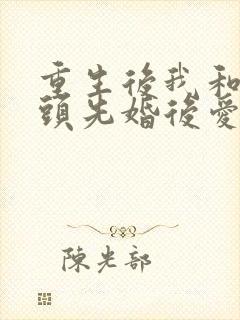 重生後我和
頭先婚後愛
陳光部